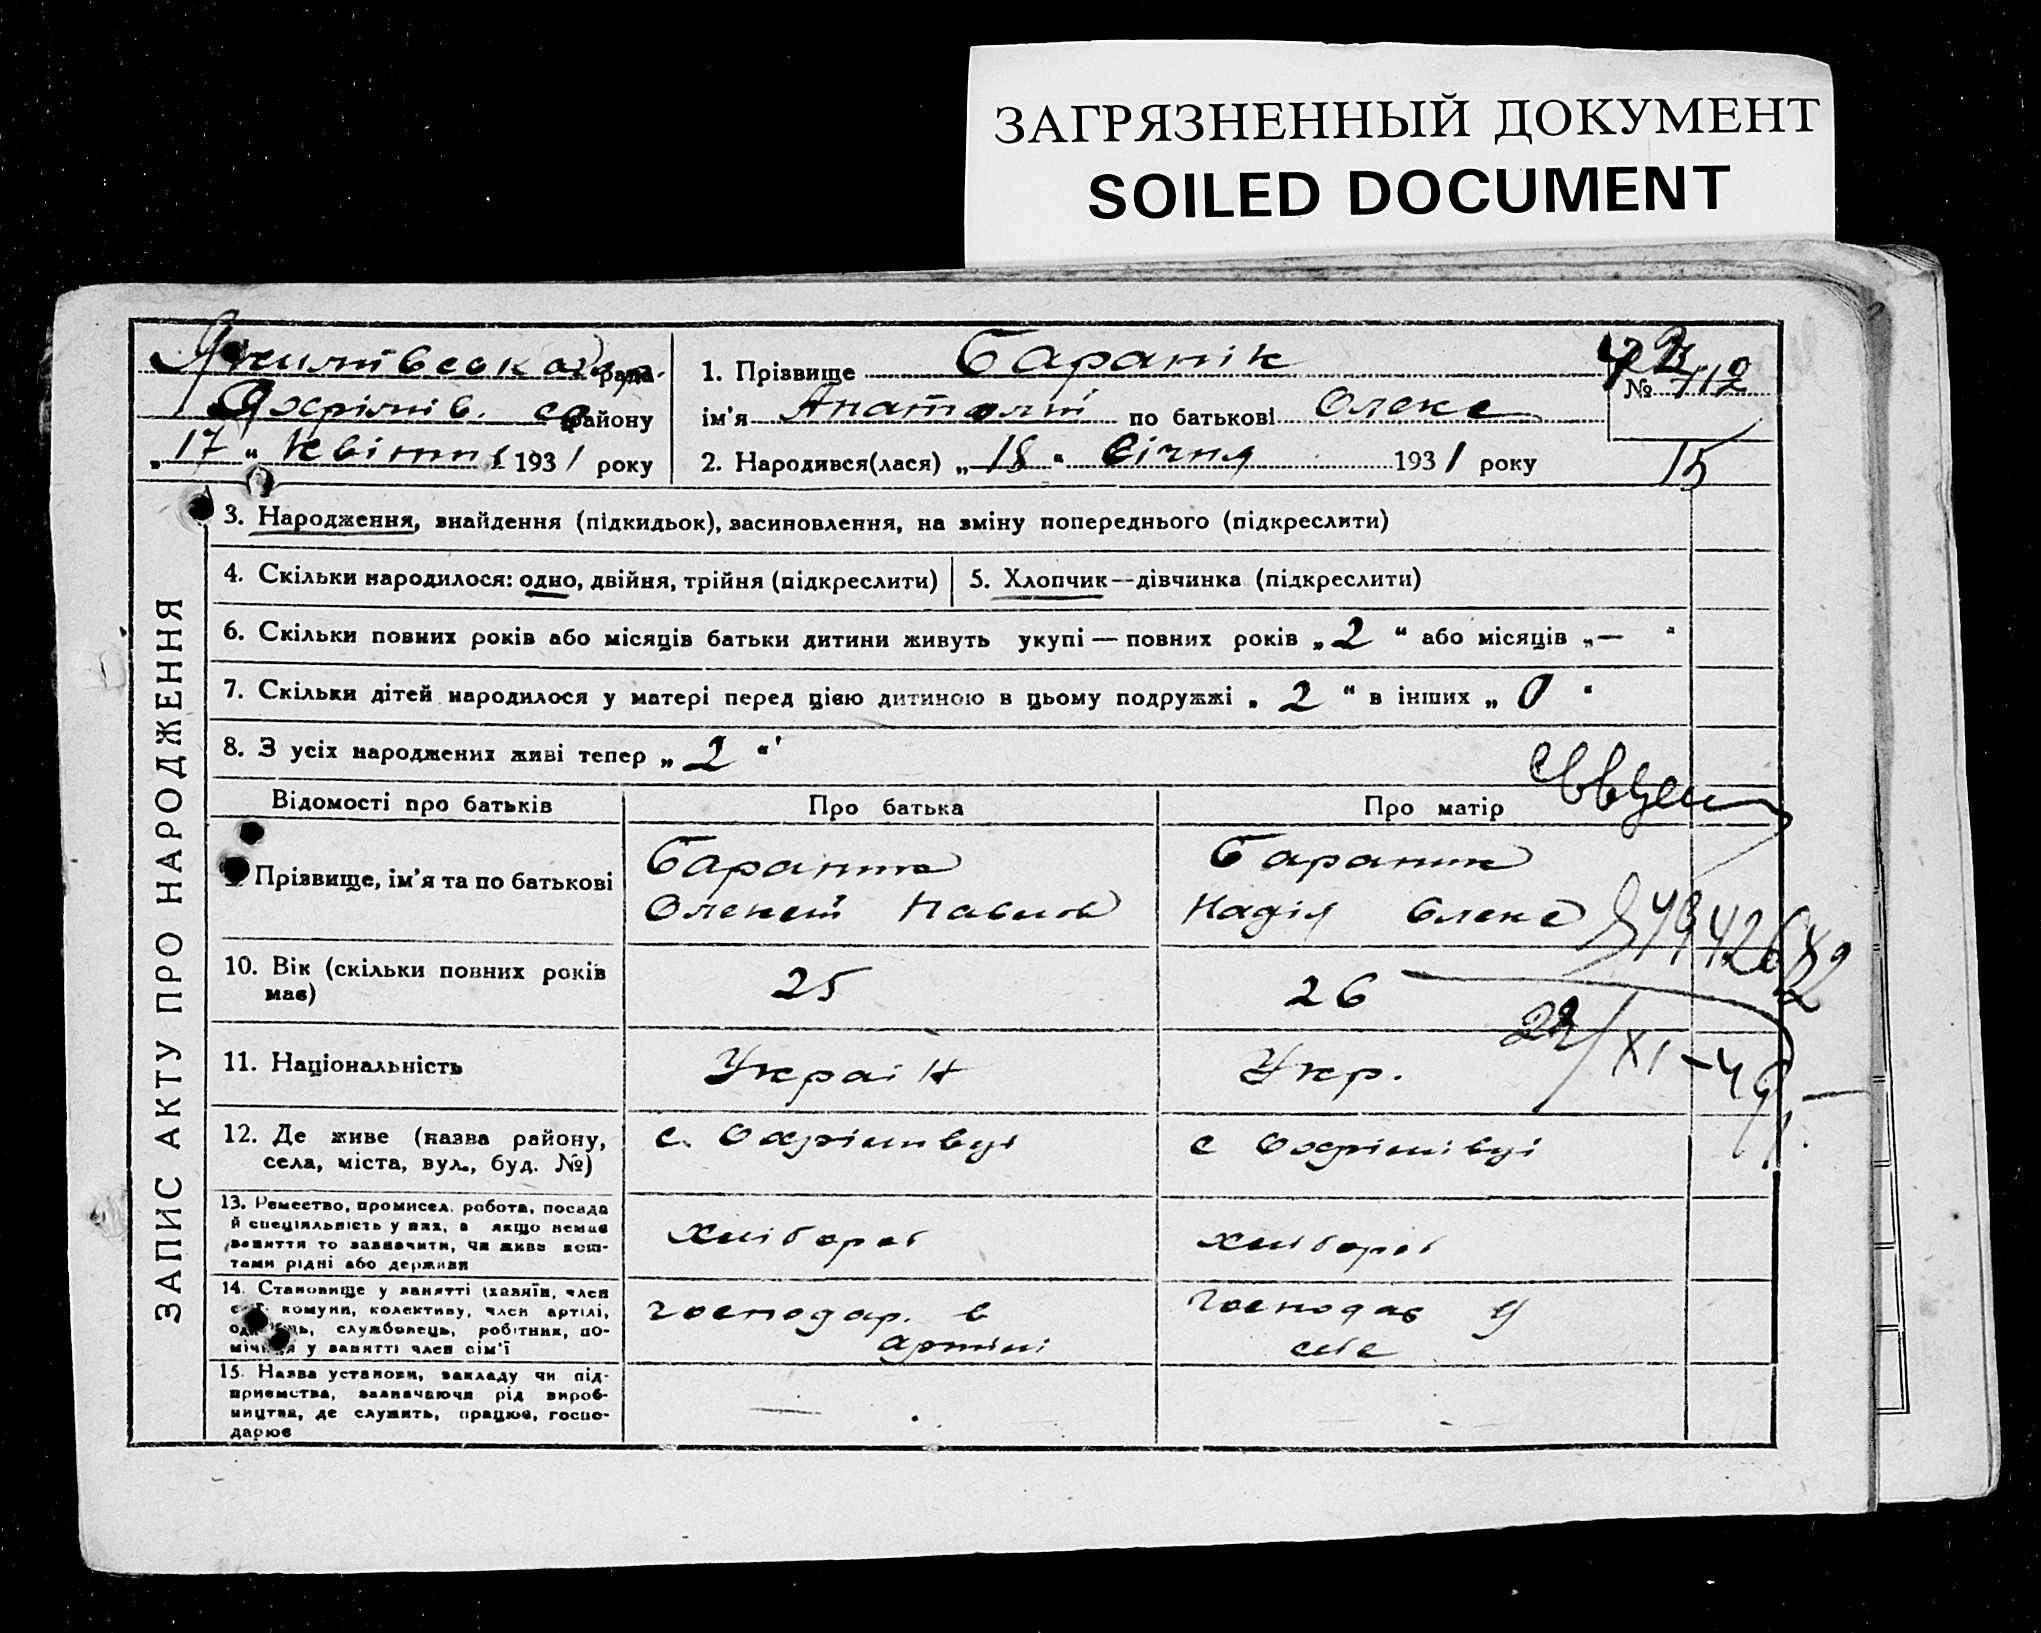 ЗАГРЯЗНЕННЫЙ ДОКУМЕНТ
SOILED DOCUMENT
рада
району
„17“ Квітня 1931 року
1. Прізвище Баранік
ім'я Анатолій по батькові Олекс
2. Народився(лася) „18“ Січня 1931 року
№ 112
15
ЗАПИС АКТУ ПРО НАРОДЖЕННЯ
3. Народження, знайдення (підкидьок), засиновлення, на зміну попереднього (підкреслити)
4. Скільки народилося: одно, двійня, трійня (підкреслити)
5. Хлопчик—дівчинка (підкреслити)
6. Скільки повних років або місяців батьки дитини живуть укупі — повних років „2“ або місяців „—“
7. Скільки дітей народилося у матері перед цією дитиною в цьому подружжі „2“ в інших „0“
8. З усіх народжених живі тепер „2“
Відомості про батьків
Про батька
Про матір
Прізвище, ім'я та по батькові
Бараник
Олексій Павлов
Бараник
Надія Олекс
10. Вік (скільки повних років
має)
25
26
22/XI-49
11. Національність
Україн
Укр.
12. Де живе (назва району,
села, міста, вул., буд. №)
с. Охріімівці
с Охріімівці
13. Ремество, промисел, робота, посада
й спеціяльність у них, а якщо немає
заняття то зазначити, чи живе кош-
тами рідні або держави
хлібороб
хлібороб
14. Становище у занятті (хазяїн, член
комуни, колективу, член артілі,
службовець, робітник, по-
у занятті член сім'ї
господар. в
артілі
Господар У
себе
15. Назва установи, закладу чи під-
приємства, зазначаючи рід вироб-
ництва, де служить, працює, госпо-
дарює
—